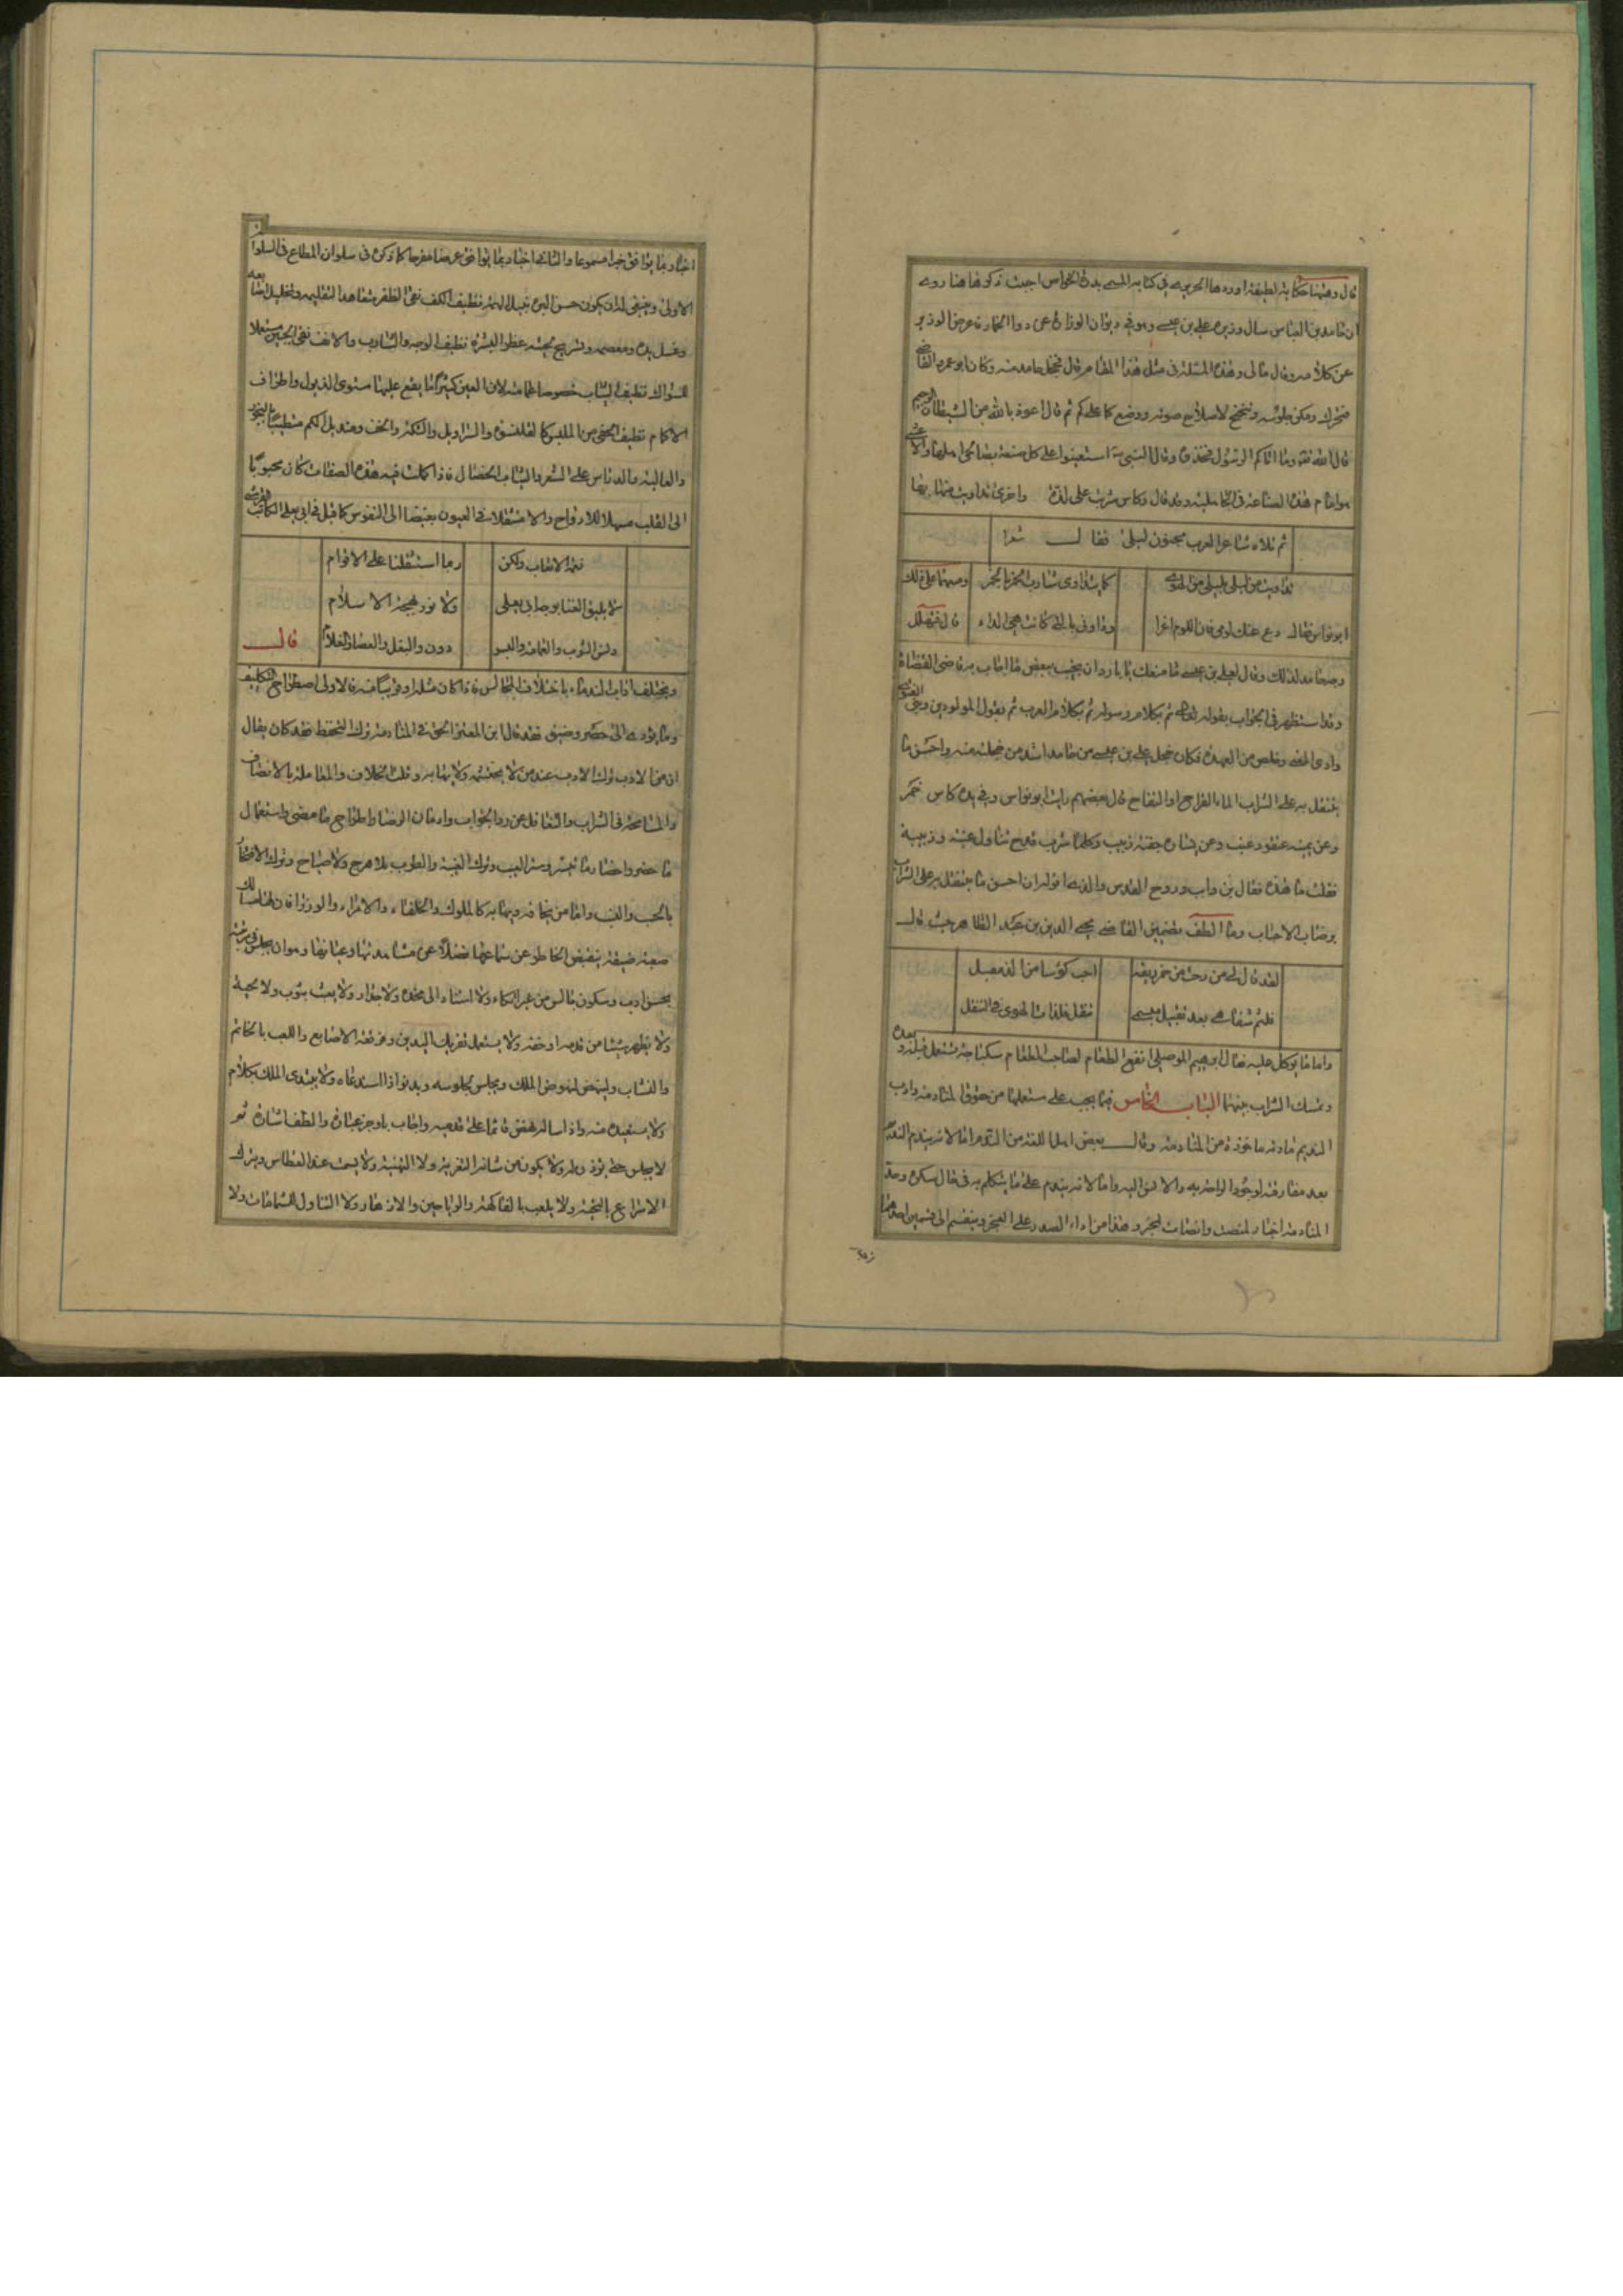 قال وههنا حكاية لطيفة اوردها الحريري في كتابه المسمى بدرة الخواص اجببت ذكرها هنا روى
ان حامد بن العباس سال وزيره علي بن عيسى وهو في ديوان الوزارة عن دواء الخمار فاعرض الوزير
عن كلامه وقال مالي وهذه المسئلة في مثل هذا المقام قال فخجل حامد منه وكان ابو عمرو القاضي
فتحرك ومكن جلوسه وتنحنح لاصلاح صوته ووضع كما على كم ثم قال اعوذ بالله من الشيطان الرجيم
قال الله تعه وما اتاكم الرسول فخذوه وقال النبي استعينوا على كل صنعة بصالحي اهلها والاعشى
هو امام هذه الصناعة في الجاهلية وقد قال وكاس شربت على لذة واخرى تداويت منها بها
ثم تلاه شاعر العرب مجنون ليلى فقال شعرا
تداويت من ليلى بليلى من الهوى كما يتداوى شارب الخمر بالخمر ومنهما على ذلك
ابو نواس فقال دع عنك لومي فان اللوم اغرا وداوني بالتي كانت هي الداء قال فتهلل
وجه حامد لذلك وقال لعلي بن عيسى ما منعك يا بارد ان تجيب ببعض ما اجاب به قاضي القضاة
وقد استظهر في الجواب بقوله تعالى ثم بكلام رسوله ثم بكلام العرب ثم بقول المولودين وبين الفتوى
وادى المعنى وخلص من العهدة فكان خجل علي بن عيسى من حامد اشد من خجلته منه واحسن ما
يتنقل به على الشراب الماء القراح او التفاح قال بعضهم رايت ابو نواس وفي يده كاس خمر
وعن يمينه عنقود عنب وعن يساره جفنة زبيب وكلما شرب قدح تناول عنبة وزبيبة
فقلت ما هذه فقال بن واب وروح القدس والذي اقوله ان احسن ما يتنقل به على الشراب
برضاب الاحباب وما الطف تضمين القاضي محيي الدين بن عبد الظاهر حيث قال
لقد قال لي من رحت من خمر ريقه احب كؤسا من الذ مقبل
فلثم شفاهي بعد تقبيل مبسمي تنقل فلذات الهوى في التنقل
واما ما يوكل عليه فقال ابرهيم الموصلي انفع الطعام لصاحب الطعام سكباجة تستعمل قبله وبعده
وتمسك الشراب بينهما الباب الخامس فيما يجب على مستعملها من حقوق المنادمة وادب
النديم مادته ماخوذة من المنادمة وقال بعض اهل اللغة من الندم اما لانه يندم النديم
بعد مفارقته لوجود الراحة به والانس اليه واما لانه يندم على ما يتكلم به في حال سكره وحد
المنادمة اخبار لمنصت وانصات لمخبر وهذا من اداء الصدر على العجز وينقسم الى قسمين احدهما
اخبار بما يوافق خبرا مسموعا والثاني اخبار بما يوافق غرضا مفرحا كما ذكره في سلوان المطاع في السلوان
الاولى وينبغي له ان يكون حسن البزة نبيل الهمة نظيف الكف نقي الظفر متعاهدا لتقليمه وتخليل اصابعه
وغسل يده ومعصمه وتسريح لحيته عطر البشرة نظيف الوجه والشارب والانف نقي الجبين مستعملا
للسواك نظيف الثياب خصوصا عمامته لان العين كثيرا ما يقع عليها مستوى الذيول واطراف
الاكمام نظيف الخفي من الملبوس كالقلنسوة والسراويل والتكة والخف ومنديل الكم متطيبا بالبخور
والغالية والدناس على الشعر والثياب الخصال فاذا كملت فيه هذه الصفات كان محبوبا
الى القلب سهلا للارواح والا مستثقلا في العيون بغيضا الى النفوس كما قيل في ابي يعلى الكاتب
نعم الاتعاب ولكن ربما استثقلنا على الاقوام
لا يليق الغنا بوجه ابي يعلى ولا نور بهجة الاسلام
دنس الثوب والعمامة دون والبغل والعصا والغلام قال
ويختلف اداب الندماء باختلاف المجالس فاذا كان مثله او قريبا منه فالاولى اطراح التكليف
وما يؤدي الى حصر وضيق فقد قال ابن المعتز الحق في المنادمة ترك التحفظ فقد كان يقال
ان من الادب ترك الادب عند من لا يحتشمه ولا يهابه وقلة الخلاف والمعاملة بالانصاف
والمسامحة في الشراب والتغافل عن رد الجواب وادمان الرضا واطراح ما مضى واستعمال
ما حضر واحضار ما تيسر وستر العيب وترك الغيبة والطرب بلا هرج ولا صياح وترك الافتخار
بالحسب والنسب واما من يخافه ويهابه كالملوك والخلفاء والامراء والوزراء فان لها مسالك
صعبة ضيقة ينقبض الخاطر عن سماعها فضلا عن مشاهدتها وعيانها وهو ان يجلس في مرتبته
بحسن ادب وسكون جالس من غير اتكاء ولا استناد الى مخدة ولا جدار ولا يعبث بثوب ولا لحية
ولا يظهر شيئا من قدمه او خفه ولا يستعمل تفريك اليدين وفرقعة الاصابع واللعب بالخاتم
والنشاب ولينهض لنهوض الملك ويجلس لجلوسه ويدنو اذا استدعاه ولا يبتدى الملك بكلام
ولا يستعيده منه واذا ساله نهض قائما على قدميه واجاب باوجز عبارة والطف اشارة ثم
لا يجلس حتى يؤذن له ولا يكون من شانه التعزية ولا التهنية ولا يسمت عند العطاس ويترك
الاسراع بالتحية ولا يلعب بالفاكهة والرياحين والازهار ولا التناول للشمامات ولا